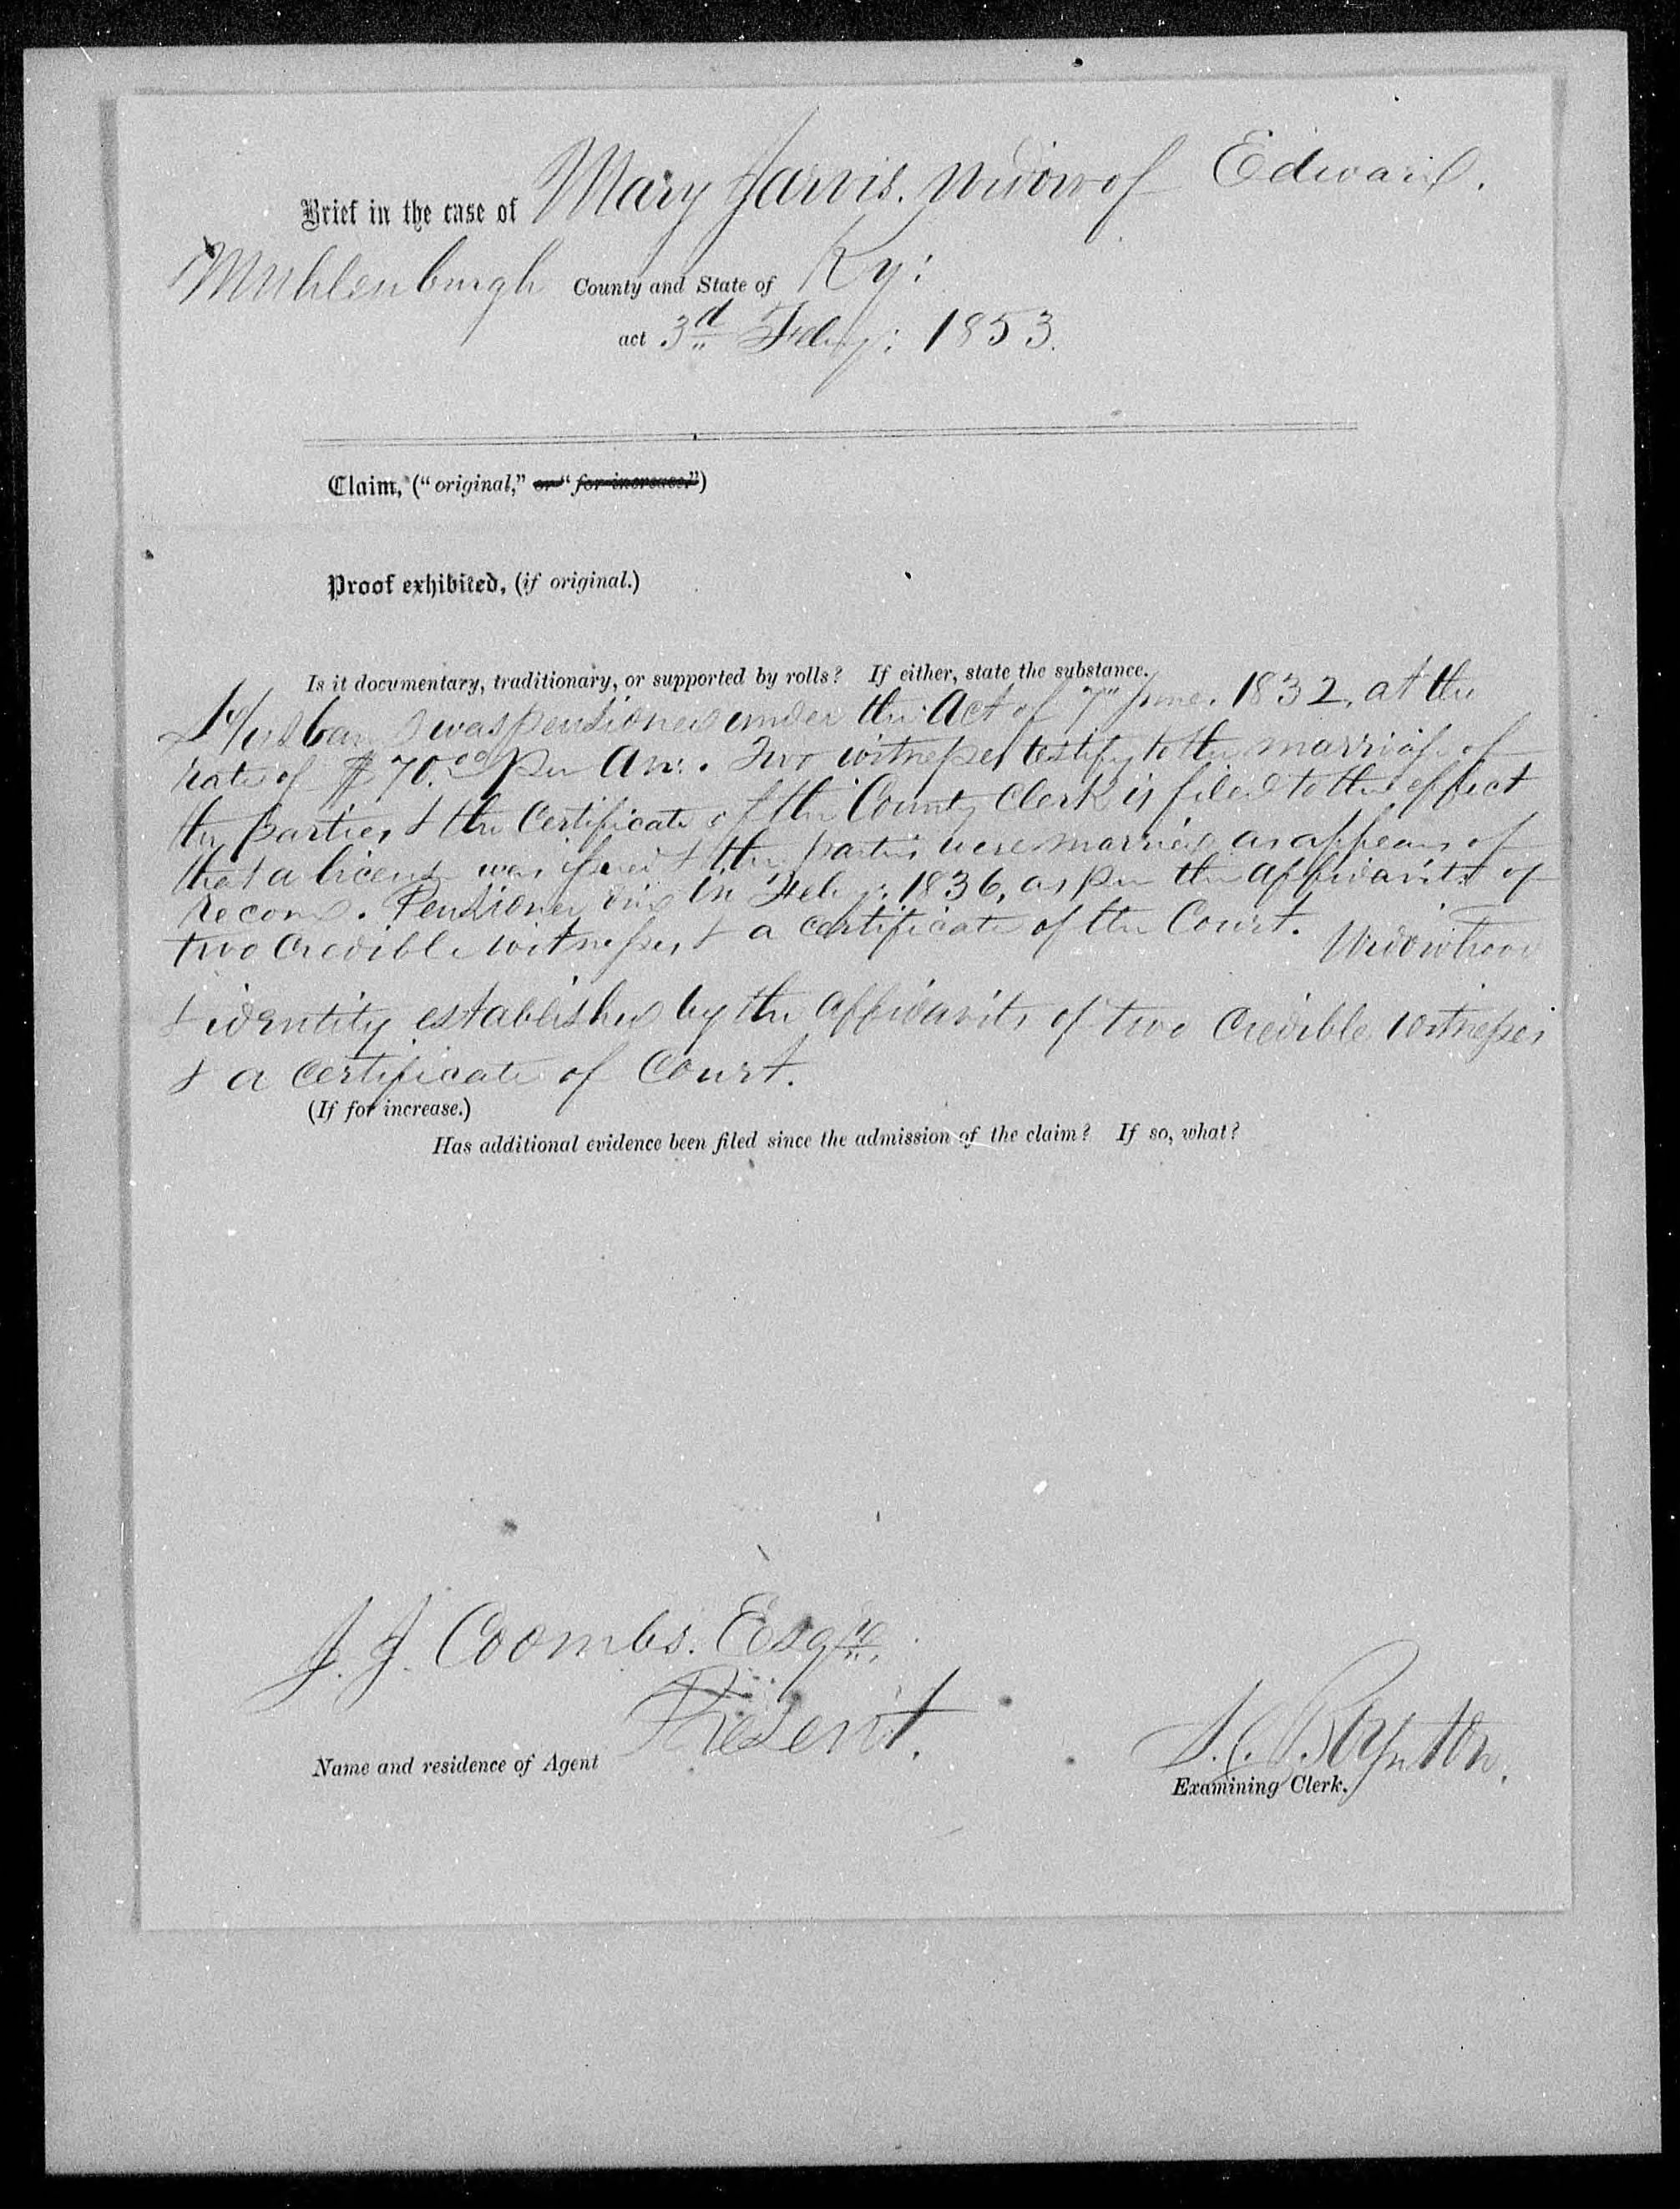 Brief in the case of Mary Jarvis. Widow of Edward.
Muhlenburgh County and State of Ky:
act 3d Feby: 1853.
Claim, ("original," or "for increase.")
Proof exhibited, (if original.)
Is it documentary, traditionary, or supported by rolls? If either, state the substance.
Husband was pensioned under the Act of 7" June. 1832, at the
rate of $70.00 per An:. Two witnesses testify to the marriage of
the parties & the Certificate of the County Clerk is filed to the effect
that a license was issued & the parties were married as appears of
record. Pensioner died in Feby: 1836, as per the affidavits of
two credible witnesses & a certificate of the Court. Widowhood
& identity established by the affidavits of two credible witnesses
& a certificate of Court.
(If for increase.)
Has additional evidence been filed since the admission of the claim? If so, what?
J. J. Coombs. Esqre.
Present.
Name and residence of Agent
S. C. Boynton.
Examining Clerk.